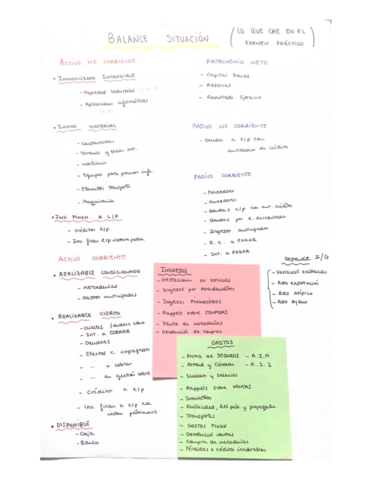 BALANCE SITUACIÓN
(LO QUE CAE EN EL EXAMEN PRÁCTICO)
ACTIVO NO CORRIENTE
• INMOVILIZADO INTANGIBLE
- Propiedad Industrial
- Aplicaciones informáticas
• INMOV. MATERIAL
- Construcciones
- Terrenos y
- Mobiliario
- Equipos para proceso info.
- Elementos Transporte
- Maquinaria
• INV. FINAN. A L/P
- Créditos L/P
- Inv. finan L/P
ACTIVO CORRIENTE
• REALIZABLE CONDICIONADO
- Mercaderías
- Gastos anticipados
• REALIZABLE CIERTO
- Clientes
- Int. a COBRAR
- Deudores
- Efectos C. impagados
- " " a cobrar
- " " en gestión cobro
- Créditos a C/P
- Inv. finan a C/P con
• DISPONIBLE
- Caja
- Banco
PATRIMONIO NETO
- Capital Social
- Reservas
- Resultado Ejercicio
PASIVO NO CORRIENTE
- Deudas a L/P con entidades de crédito
PASIVO CORRIENTE
- Proveedores
- Acreedores
- Deudas C/P con ent. crédito
- Deudas por e. descontados
- Ingresos anticipados
- E. C. a PAGAR
- Int. a PAGAR
INGRESOS
- Prestaciones de servicios
- Ingresos por arrendamientos
- Ingresos Financieros
- Rappels sobre COMPRAS
- Venta de mercaderías
- Devolución de compras
Depende I/G
- Variación existencias
- Rdo explotación
- Rdo Atípico
- Rdo Ajeno
GASTOS
- Prima de SEGUROS - A.I.M
- Arrend y Cánones - A.I.I
- Sueldos y Salarios
- Rappels sobre VENTAS
- Suministros
- Publicidad, Rel púb y propaganda
- Transportes
- Gastos Finan.
- Devolución ventas
- Compra de mercaderías
- Pérdidas x crédito incobrables